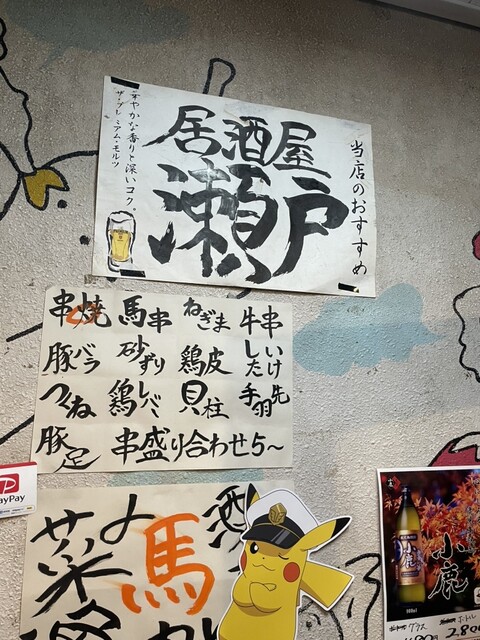 居酒屋
瀬戸
当店のおすすめ
華やかな香りと深いコク。
ザ・プレミアム・モルツ
串焼 馬串 ねぎま 牛串
豚バラ 砂ずり 鶏皮 したいけ
つくね 鶏レバー 貝柱 手羽先
豚足 串盛り合わせ5〜
PayPay
馬
小鹿
小鹿
グラス
ボトル